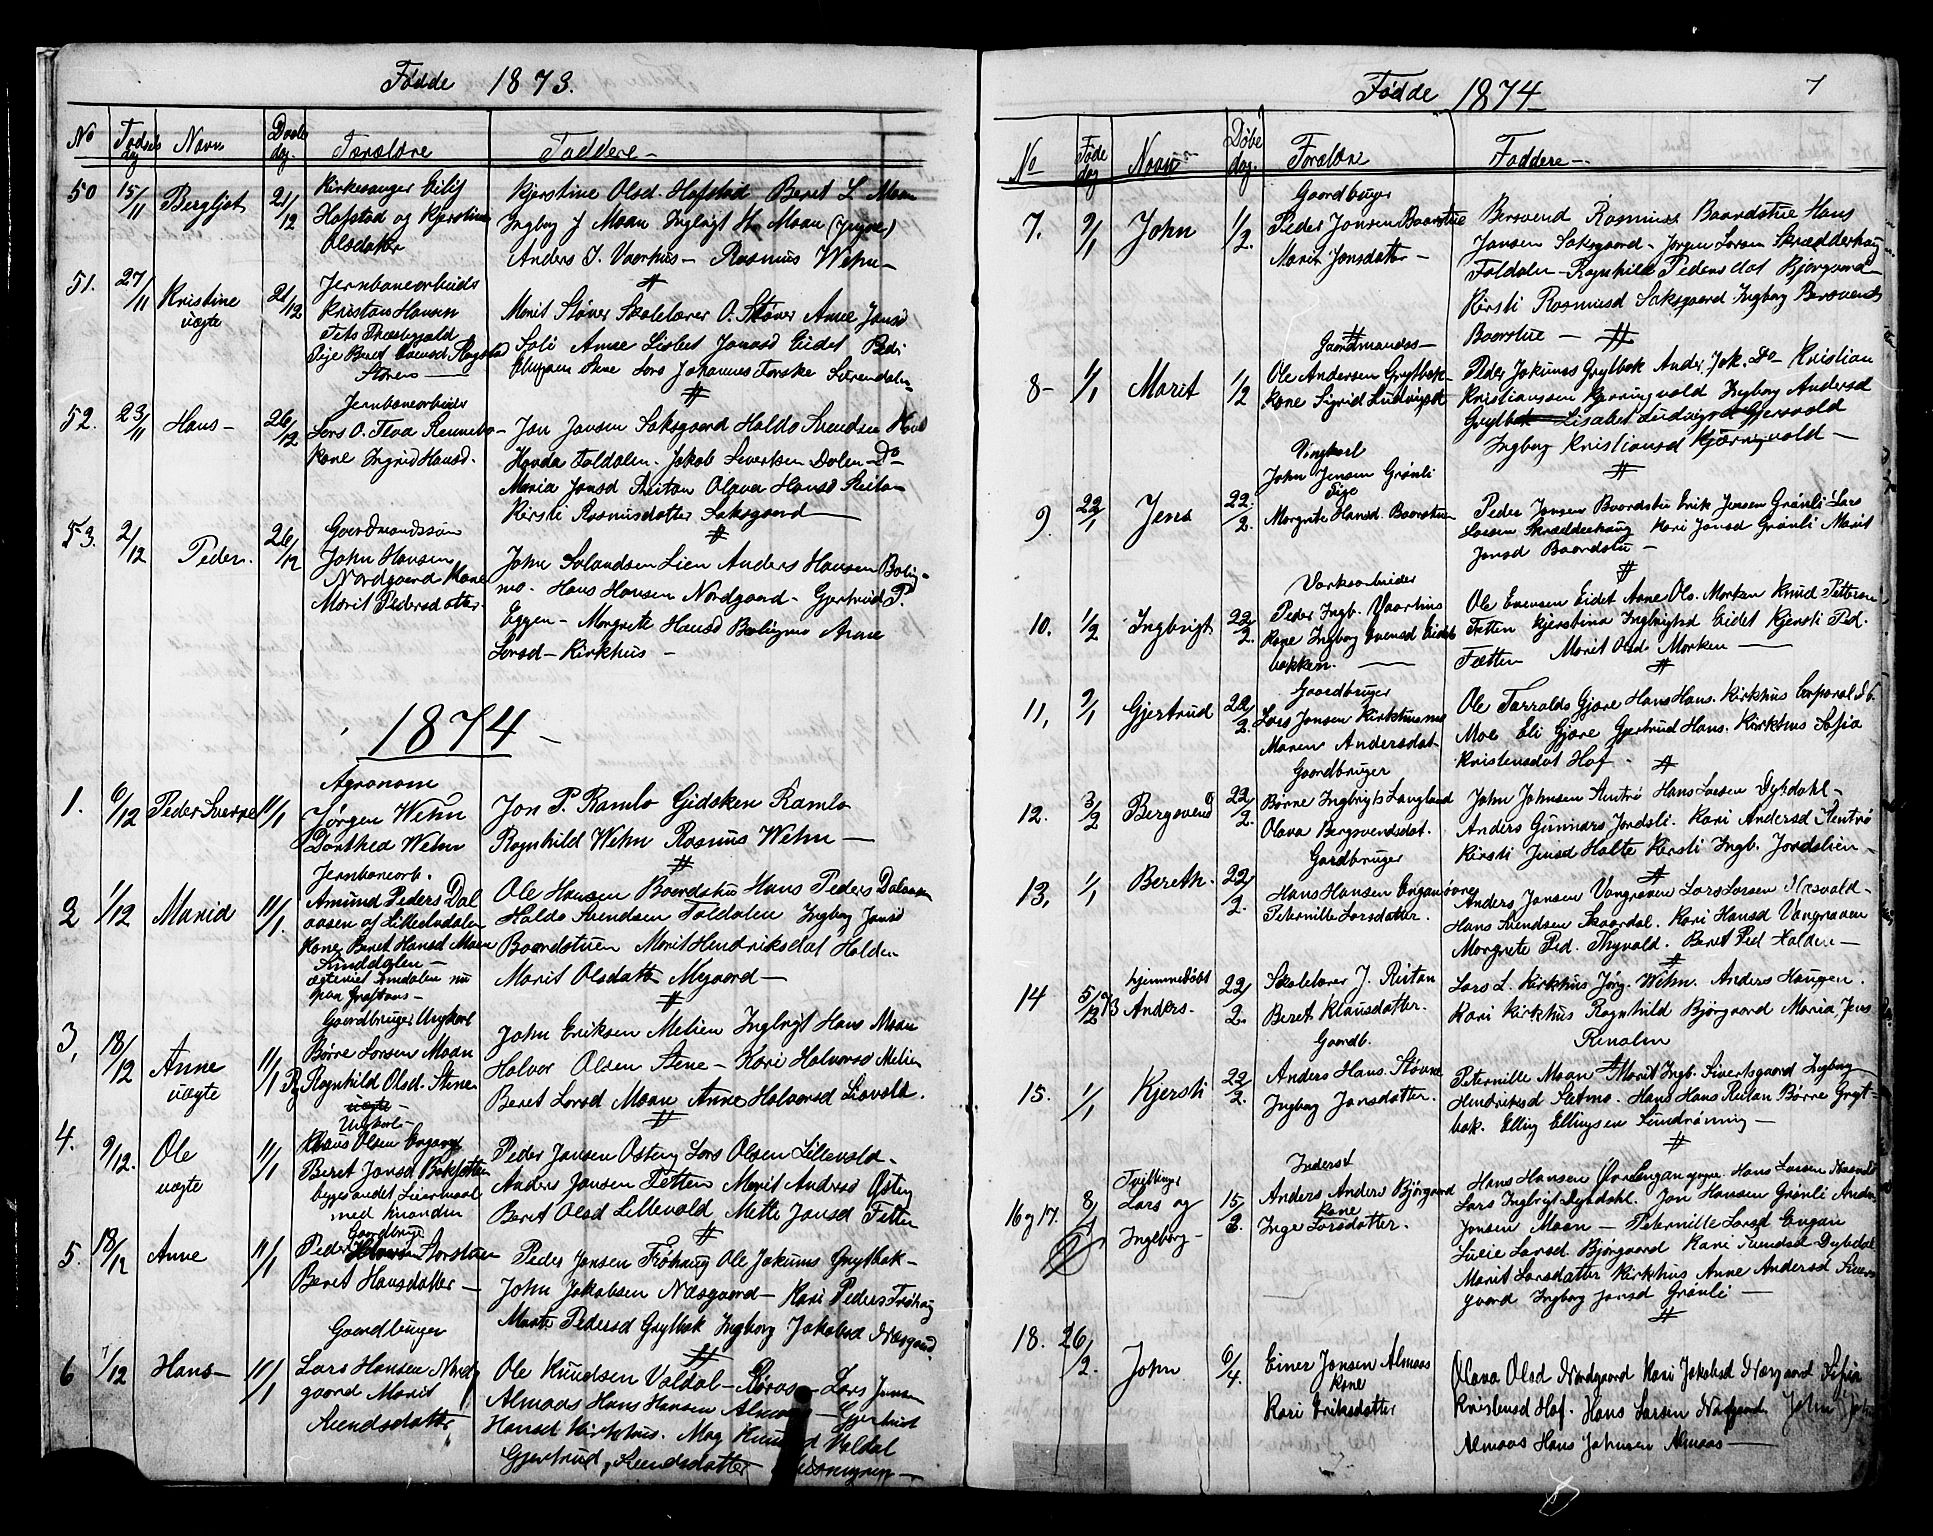 Fødde 1873.
No Fødsels dag Navn Daabs dag. Forældre Faddere
50 15/11 Bergljot 21/12
Kirkesanger Eilif
Hofstad og Kjerstine
Olsdatter
Kjerstine Olsd. Hofstad Beret L. Moan
Ingborg J Moan Ingbrigt H. Moan
Anders J. Vaarhus - Rasmus Wehn -
51. 27/11 Kristine uægte 21/12
Jernbanearbeids
Kristian Hansen
Pige Beret
Støren
Marit Støver Skolelærer O. Støver Anne Jonsd
Soli Anne Lisbet Jonsd Eidet Peder
Lars Johannes Forske Surendalen
52. 23/11 Hans - 26/12
Jernbanearbeids
Lars O. Floa Rennebo
Kone Ingrid Hansd.
Jon Jansen Saksgaard Haldo Svendsen
Hovda Foldalen. Jakob Sivertsen Dalen - Do
Maria Jonsd Reitan Olava Hansd Reitan
Kirsti Rasmusdatter Saksgaard
53. 2/12 Peder. 26/12
Gaardmandssøn
John Hansen
Nordgaard Kone
Marit Pedersdatter
John Salandsen Lien Anders Hansen Bolig-
mo. Hans Hansen Nordgaard - Gjertrud P.
Eggen - Morgrete Hansd Boligmo Anne
Larsd - Kirkhus -
1874 -
1. 6/12 Peder Sverre 11/1
Agronom
Jørgen Wehn
Dorthea Wehn
Jon P. Ramlo Gidsken Ramlo
Ragnhild Wehn Rasmus Wehn
2 1/12 Marid 11/1.
Jernbanearb.
Amund Peders Dal
aasen af Lilleelvdalen
Kone Beret Hansd Moen
Ole Hansen Baardstu Hans Peders Dalaasen
Haldo Svendsen Foldalen Ingborg Jonsd
Baardstuen Marit Hendriksdat Halden
Marit Olsdatt Megaard -
3, 18/12 Anne uægte 11/1
Gaardbruger Ungkarl
Børre Larsen Moan
Pg Ragnhild Olsd Stene
uægte
John Eriksen Melien Ingbrigt Hans Moan
Halvor Olsen Stene - Kari Halvorsd Melien
Beret Larsd Moan Anne Halvorsd Liavold.
4. 9/12. Ole uægte 11/1
Ungkarl -
Klaus Olsen Engan
Beret Jonsd
begges andet Leiermaal
med hinanden
Peder Jansen Østeng Lars Olsen Lillevold -
Anders Jansen Tetten Marit Andersd Østeng
Beret Olsd Lillevold Mette Jonsd Tetten
5. 18/12 Anne 11/1
Gaardbrug
Peder Larsen
Beret Hansdatter -
Peder Jonsen Frøhaug Ole Jokums Grytbak -
John Jakobsen Næsgaard - Kari Peders Frøhaug
Marit Pedersd Grytbak Ingborg Jakobsd Næsgaard
6 7/12 Hans - 11/1
Gaardbruger
Lars Hansen Nord
gaard Marit
Svendsdatter
Ole Knudsen Valdal - Røros - Lars Jonsen
Almaas Hans Hansen Almaas - Gjertrud
Hansd Kirkhus. Mag Knudsd Valdal
Gjertrud Svendsdatter
Fødde 1874
7
No Føde dag Navn Døbe dag. Forældre Faddere -
7. 9/1 John 1/2.
Gaardbruger
Peder Jonsen Baardstue
Marit Jonsdatter -
Bersvend Rasmus Baardstue Hans
Jansen Saksgaard - Jørgen Larsen Skrædderhaug
Foldalen - Ragnhild Pedersdat Bjørgaard
Kirsti Rasmusd Saksgaard Ingborg Bersvends
Baarstue -
8 - 1/1 Marit 1/2
Gaardmands -
Ole Andersen Grytbak -
Kone Sigrid Ludvigsd
Peder Jokums Grytbak Ander Jok. Do - Kristian
Kristiansen Kjerringvold Ingborg Andersd
Grytbak Lisabet Ludvigsd Gjersvold
Ingborg Kristiansd Kjerringvold -
9. 22/1 Jens 22/2.
Ungkarl
John Jensen Grønli
Pige
Morgrite Hansd. Baarstuen
Peder Jonsen Baardstu Erik Jensen Grønli Lars
Larsen Skrædderhaug Kari Jonsd Grønli Marit
Jonsd Baardstu -
10. 1/2 Ingbrigt 22/2.
Værksarbeider
Peder Ingb. Vaarhus
Kone Ingborg Evensd Eidet
bakken.
Ole Evensen Eidet Arne Ols. Morken Knud Pettersen
Tetten Kjerstina Ingbrigtsd Eidet Kjersti Ped.
Tetten Marit Olsd. Morken
11, 9/1 Gjertrud 22/2.
Gaardbruger
Lars Jonsen Kirkhusmo
Maren Andersdat -
Ole Tarralds Gjøre Hans Hans. Kirkhus Corporal
Moe Eli Gjøre Gjertrud Hans. Kirkhus Sofia
Kristensdat Hof -
12. 3/2 Bergsvend 22/2.
Gaardbruger
Børre Ingbrigts Langland
Olava Bergsvendsdat.
John Johnsen Rentrø Hans Larsen Dybdahl -
Anders Gunnars Jordsli. Kari Andersd Rentrø
Kirsti Jensd Holte Kersti Ingb. Jordslien -
13, 1/1 Bereth. 22/2.
Gaardbruger
Hans Hansen Engan øvre
Peternille Larsdatter.
Anders Jansen Vangrøven Lars Larsen Næsvold -
Hans Svendsen Skaardal. Kari Hansd Vangrøven
Morgrete Ped. Thyvold. Beret Ped Halden -
14 5/12 73 hjemmedøbt Anders - 22/2.
Skolelærer J. Reitan
Beret Klausdatter.
Lars L. Kirkhus Jørg. Wehn. Anders Haugen.
Kari Kirkhus Ragnhild Bjørgaard Maria Jens
Renolen
15. 1/1 Kjersti 22/2.
Gaardb.
Anders Hans. Støvne
Ingborg Jonsdatter.
Peternille Moan Marit Ingb. Sivertsgaard Ingborg
Hendriksd Sætmo. Hans Hans Reitan Børre Gryt-
bak. Elling Ellingsen Sundrønning -
16 og 17. 8/1 Tvillinger Lars og Ingeborg - 15/3.
Inderst
Anders Anders Bjørgaard
Kone
Inge Larsdatter.
Hans Hansen Øvre Engan Hans Larsen
Lars Ingbrigt Dybdahl. Jon Hansen Grønli Anders
Jonsen Moan - Peternille Larsd Engan
Lucie Larsd Bjørgaard Kari Svendsd Dybdal
Marit Larsdatter Kirkhus Anne Andersd
gaard Ingborg Jonsd Grønli -
18. 26/2. John 6/4.
Einer Jonsen Almaas
Kone
Kari Eriksdatter
Olava Olsd Nordgaard Kari Jakobsd Næsgaard Sofia
Kristensd Hof. Hans Larsen Nordgaard John
Almaas Hans Johnsen Almaas